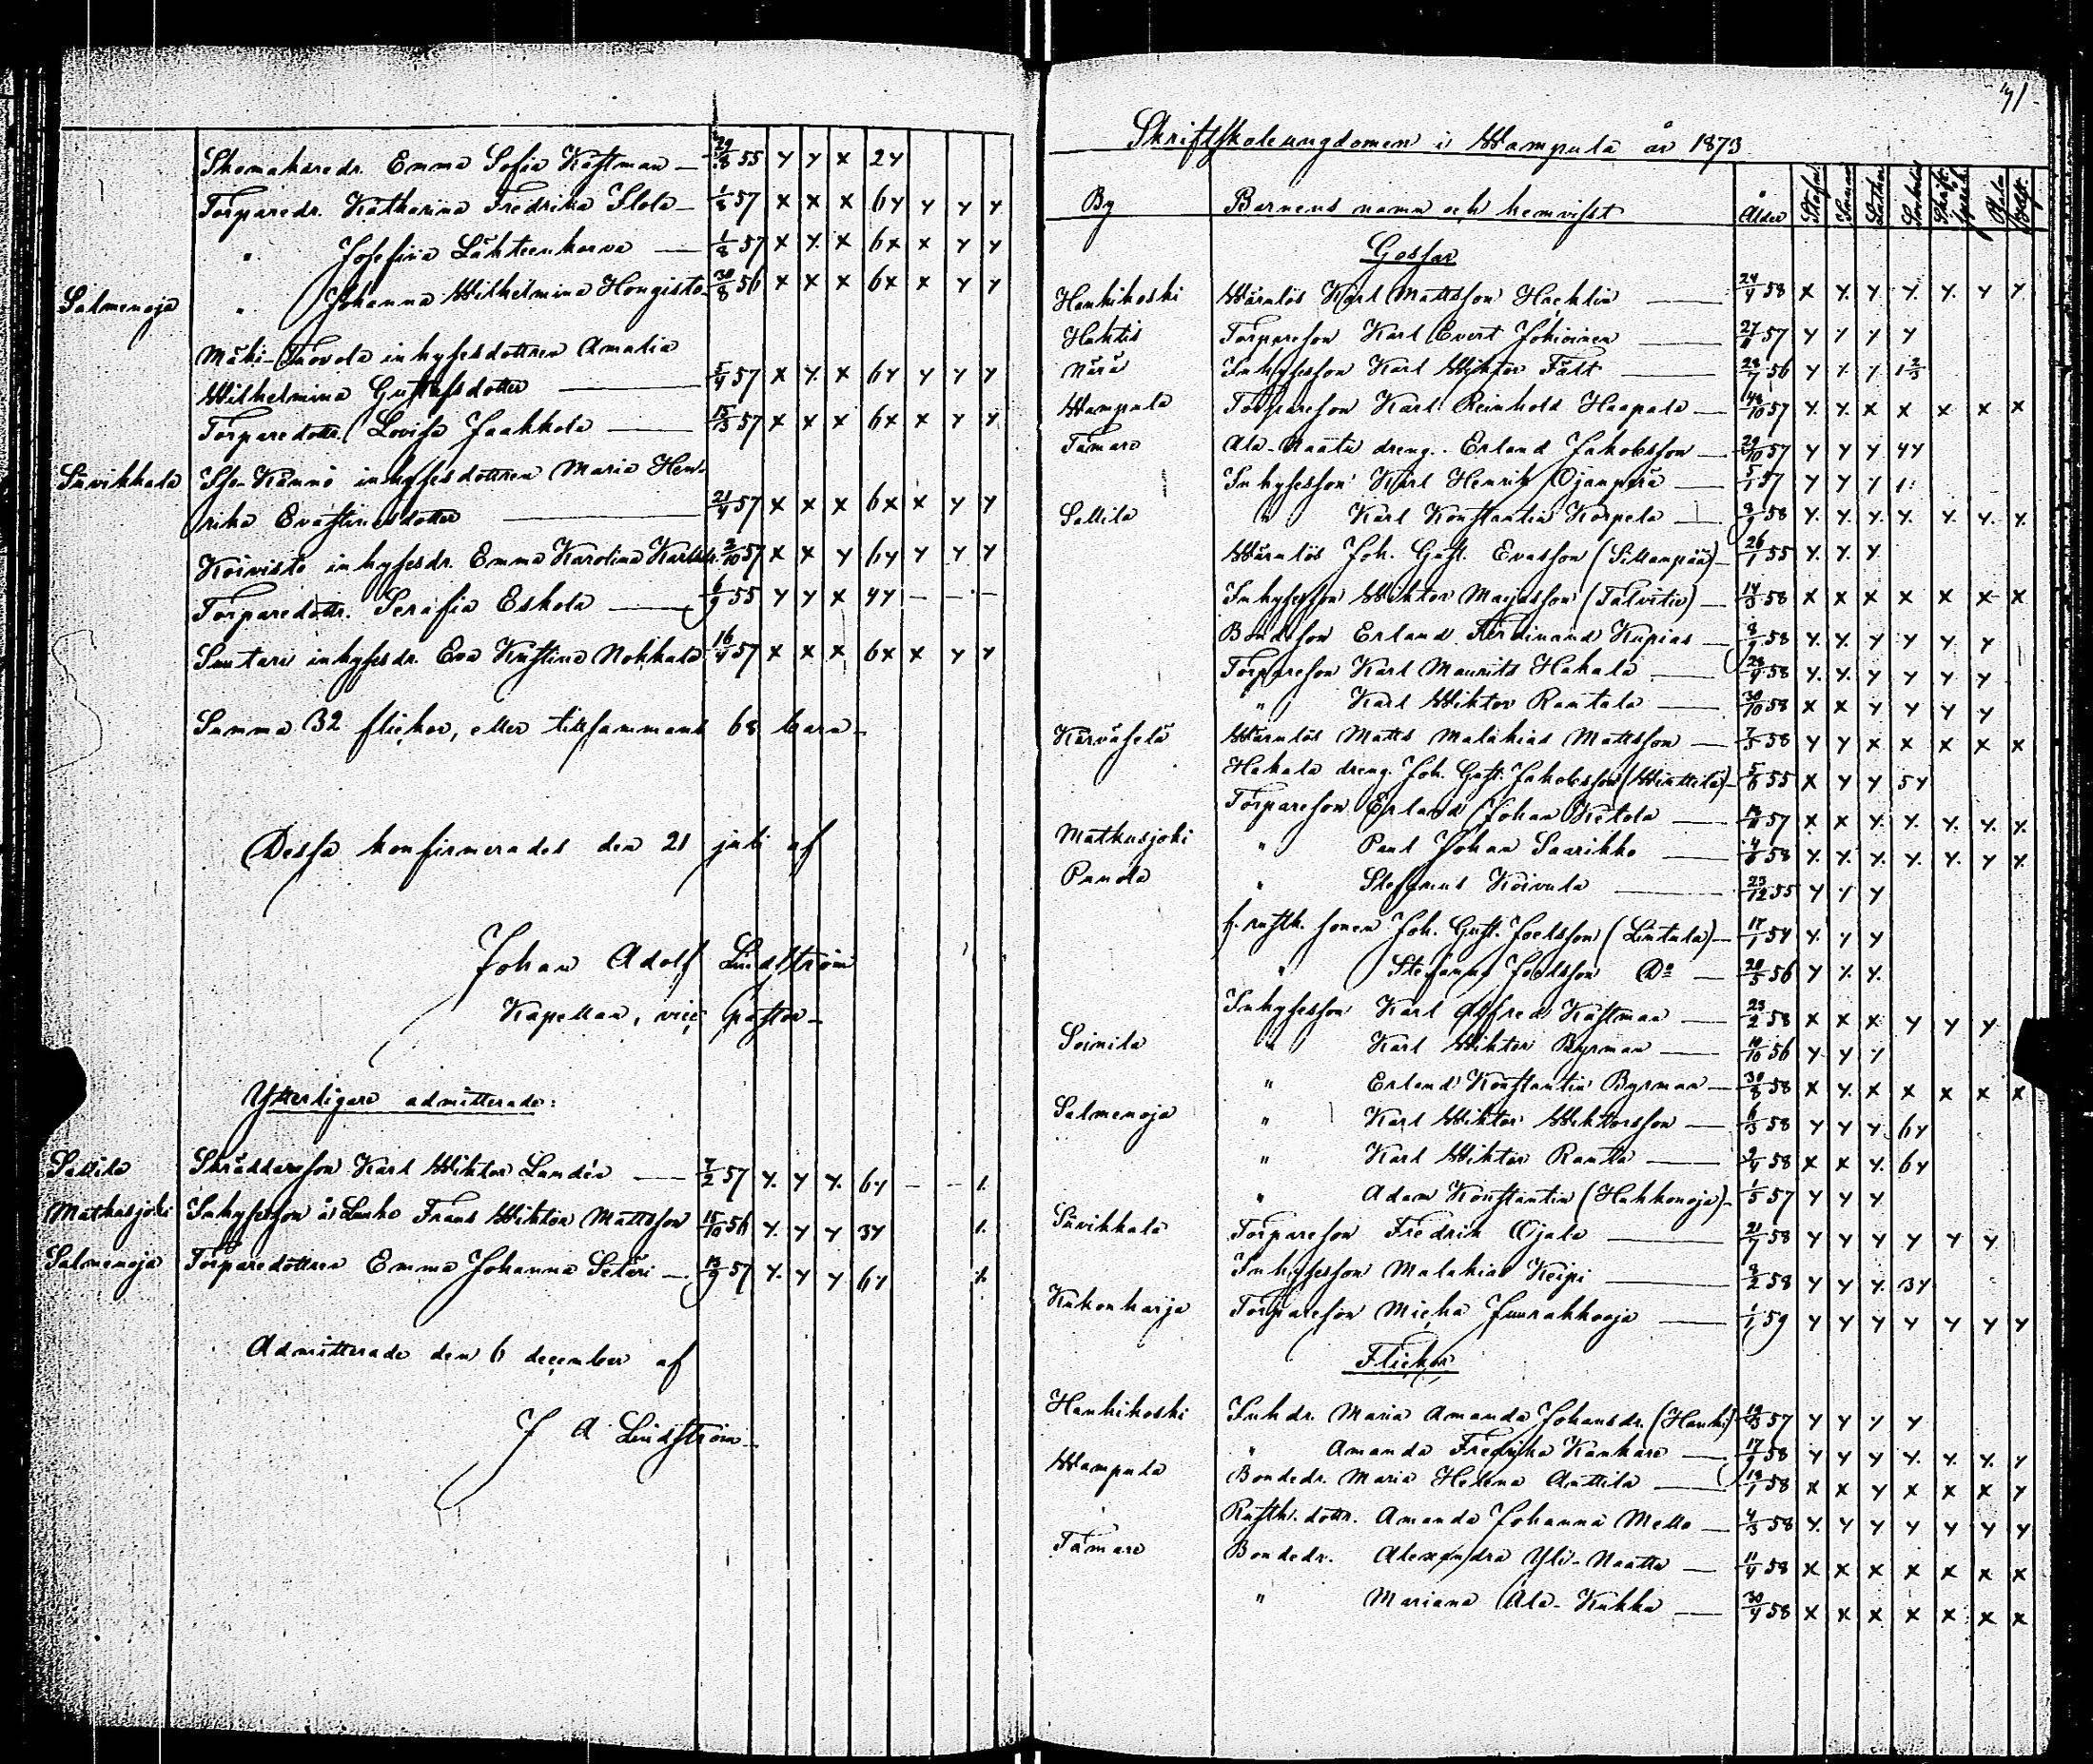 Skomakaredr. Emma Sofia Kastman — 29/8 55 y y x 2y
Torparedr. Katharina Fredrika Ilola — 1/8 57 x x x 6y y y y
" Josefina Lähteenkorva — 1/8 57 x y. x 6x x y y
Salmenoja " Johanna Wilhelmina Hongisto 30/8 56 x x x 6x x y y
Mäki-Tuovola inhysesdottren Amalia
Wilhelmina Gustafsdotter — 5/4 57 x y. x 6y y y y
Torparedottr. Lovisa Jaakkola — 15/3 57 x x x 6x x y y
Suvikkala Iso-Kännö inhysesdottren Maria Hen-
rika Evastinesdotter — 21/4 57 x x x 6x x y y
Koivisto inhysesdr. Emma Karolina Karlsdr. 2/10 57 x x y 6y y y y
Torparedottr. Serafia Eskola — 6/9 55 y y x 4y — — —
Suutari inhysesdr. Eva Kristina Nokkala 16/4 57 x x x 6x x y y
Summa 32 flickor, eller tillsammans 68 barn —
Dessa konfirmerades den 21 juli af
Johan Adolf Lindström
Kapellan, vice pastor —
Ytterligare admitterade:
Sallila Skräddareson Karl Wiktor Lundén — 7/2 57 y. y y. 6y — — /.
Matkusjoki Inhyseson å Lauho Frans Wiktor Mattsson 15/10 56 y. y y 3y /.
Salmenoja Torparedottren Emma Johanna Setäri — 13/9 57 y. y y 6y /.
Admitterade den 6 december af
J A Lindström —
71.
Skriftskoleungdomen i Wampula år 1873
By Barnens namn och hemvist Ålder
Gossar
Hankikoski Wärnlös Karl Mattsson Hacklin — 24/4 58 x y. y. y. y. y y.
Huhtis Torpareson Karl Evert Johioinen — 27/11 57 y / / y
Närä Inhyseson Karl Wiktor Fält — 23/7 56 y / / 1 2/3
Wampula Torpareson Karl Reinhold Haapala — /10 57 y. y. x x x x x
Tamare Ala-Naatu dreng. Erland Jakobsson — 29/10 57 y y y 4y
Inhyseson Karl Henrik Ojanperä — 5/1 57 y y / 1.
Sallila " Karl Konstantin Korpela — 8/9 58 y. y. y. y. y. y. y.
Wärnlös Joh. Gust. Evasson (Sillanpää) — 26/1 55 y. y. y
Inhyseson Wiktor Majasson (Talvitie) — 14/3 58 x x x x x x x
Bondeson Erland Ferdinand Kupias — 8/9 58 y. y. y y y y
Torpareson Karl Maurits Hakala — 28/9 58 y. y. y y y y
" Karl Wiktor Rantala — 30/10 58 x x y y y y
Kärväselä Wärnlös Matts Malakias Mattsson — 7/5 58 y y x x x x x
Hakala dreng. Joh. Gust. Jakobsson (Winttilä) — 5/6 55 x y y 5y
Torpareson Erland Johan Ketola — 57 x x y. y. y. y. y.
Matkusjoki " Paul Johan Saarikko — 4/6 58 y. y. y. y. y. y y.
Punola " Stefanus Koivula — 23/12 55 y / y
f. rusth. sonen Joh. Gust. Joelsson (Lintula) — 17/1 54 y. y y
" Stefanus Joelsson Do — 20/5 56 y y. y.
Inhyseson Karl Alfred Kastman — 23/2 58 x x x y y y
Soinila " Karl Wiktor Byrman — 10/10 56 y y /
" Erland Konstantin Byrman — 30/8 58 x y. x x x x x
Salmenoja " Karl Wiktor Wiktorsson — 6/3 58 y y y 6y
" Karl Wiktor Rantta — 2/4 58 x x y. 6y
" Adam Konstantin (Hakkonoja) — 1/5 57 y y y
Suvikkala Torpareson Fredrik Ojala — 21/7 58 y y y y y y
Inhyseson Malakias Keipi — 8/2 58 y y y. 3y
Kukonharja Torpareson Micha Juurakkooja — 1/1 59 y y y y y y y
Flickor
Hankikoski Inhdr. Maria Amanda Johansdr. (Hanki) 57 y y / y
" Amanda Fredrika Kankare — 17/9 58 y y y y. y. y. y
Wampula Bondedr. Maria Helena Anttila — 18/1 58 x x y x x x y
Rusth. dottr. Amanda Johanna Mello — 4/3 58 y. y y y y y y
Tamare Bondedr. Alexandra Yli-Naatu — 11/4 58 x x x x x x x
" Mariana Ala-Kukka — 30/4 58 x x x x x x x